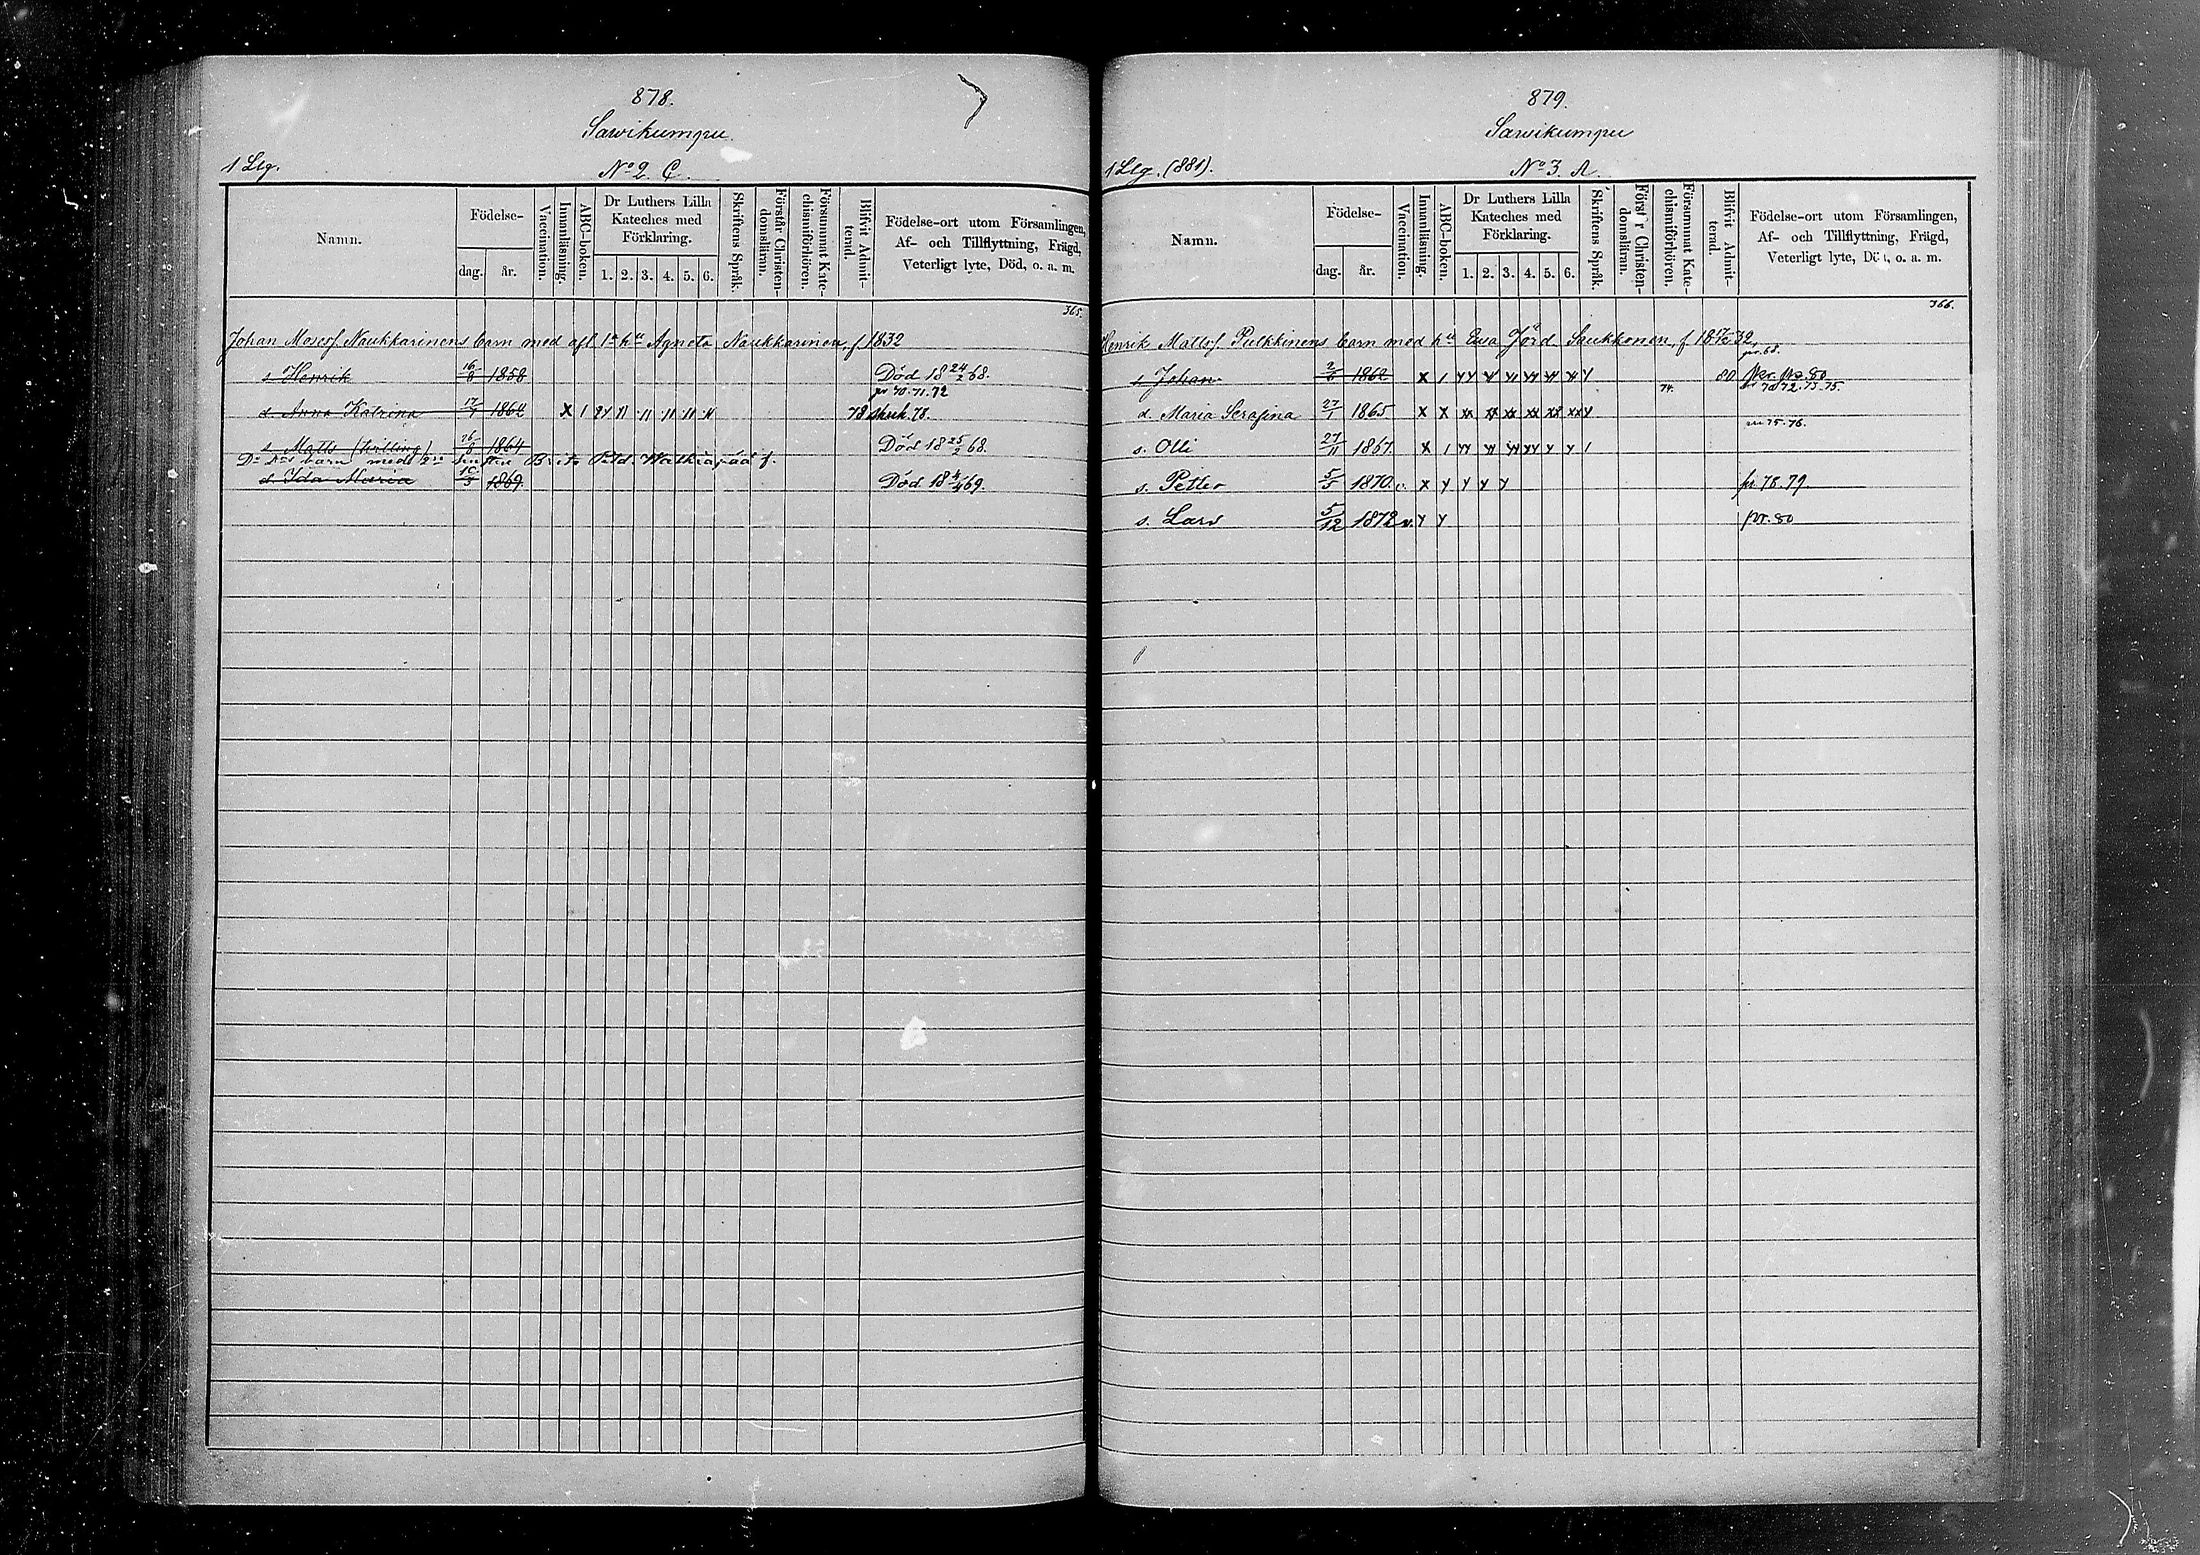 878.
Sawikumpu.
1 Llg.
No 2. C.
Namn.
Födelse-
dag.
år.
Vaccination.
Innanläsning.
ABC-boken.
Dr Luthers Lilla
Kateches med
Förklaring.
1. 2. 3. 4. 5. 6.
Skriftens Språk.
Förstår Christen-
domsläran.
Försummat Kate-
chismiförhören.
Blifvit Admit-
terad.
Födelse-ort utom Församlingen,
Af- och Tillflyttning, Frägd,
Veterligt lyte, Död, o. a. m.
365.
Johan Mosesf. Naukkarinens barn med afl. 1a hu Agneta Naukkarinen, f. 1832
s. Henrik 16/8 1858 Död 18 24/2 68.
pr 70. 71. 72
d. Anna Katrina 17/1 1862 X 1 78 78.
s. Matts (tvilling) 16/8 1864 Död 18 25/2 68.
barn med
d. Ida Maria 10/3 1869. Död 18 69.
879.
Sawikumpu
1 Llg. (881).
No 3. A.
Namn.
Födelse-
dag.
år.
Vaccination.
Innanläsning.
ABC-boken.
Dr Luthers Lilla
Kateches med
Förklaring.
1. 2. 3. 4. 5. 6.
Skriftens Språk.
Först r Christen-
domsläran.
Försummat Kate-
chismiförhören.
Blifvit Admit-
terad.
Födelse-ort utom Församlingen,
Af- och Tillflyttning, Frägd,
Veterligt lyte, Död, o. a. m.
366.
Henrik Mattsf. Pulkkinens barn med hu Eva Jörd. Saukkonen, f. 18 32.
pr. 68.
s. Johan 2/6 1862 X 1 80
72. 73. 75.
d. Maria Serafina 27/1 1865 X X 74.
75. 76.
s. Olli 27/11 1867. X 1
s. Petter 5/5 1870. v. X y y y y pr. 78. 79.
s. Lars 5/12 1872 v. y y pr. 80